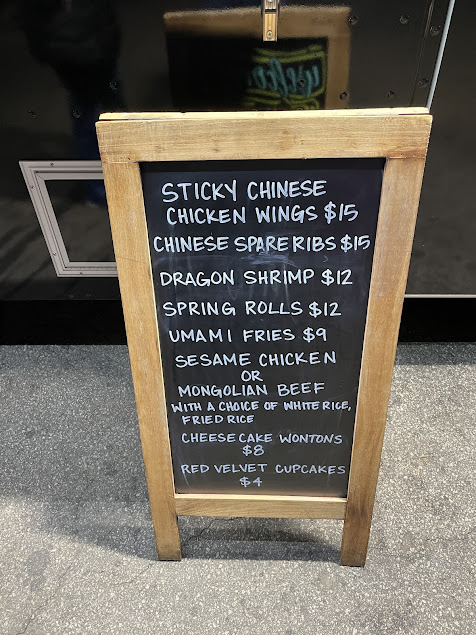 STICKY CHINESE
CHICKEN WINGS $15
CHINESE SPARERIBS $15
DRAGON SHRIMP $12
SPRING ROLLS $12
UMAMI FRIES $9
SESAME CHICKEN
OR
MONGOLIAN BEEF
WITH A CHOICE OF WHITE RICE,
FRIED RICE
CHEESECAKE WONTONS
$8
RED VELVET CUPCAKES
$4